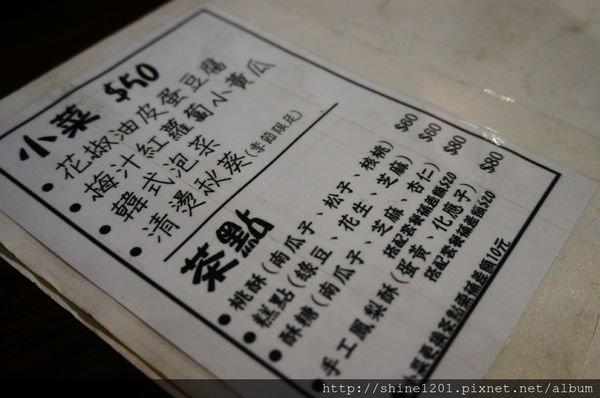 小菜 $50
花椒油皮蛋豆腐
梅汁紅蘿蔔小黃瓜
韓式泡菜
清燙秋葵(季節限定)
茶點
桃酥(南瓜子、松子、核桃) $80
糕點(綠豆、花生、芝麻) $80
酥糖(南瓜子、芝麻、杏仁) $80
搭配套餐補差額$20
手工鳳梨酥(蛋黃、化應子) $80
搭配套餐補差額$20
小菜更換茶點需補差額10元
http://shine1201.pixnet.net/album